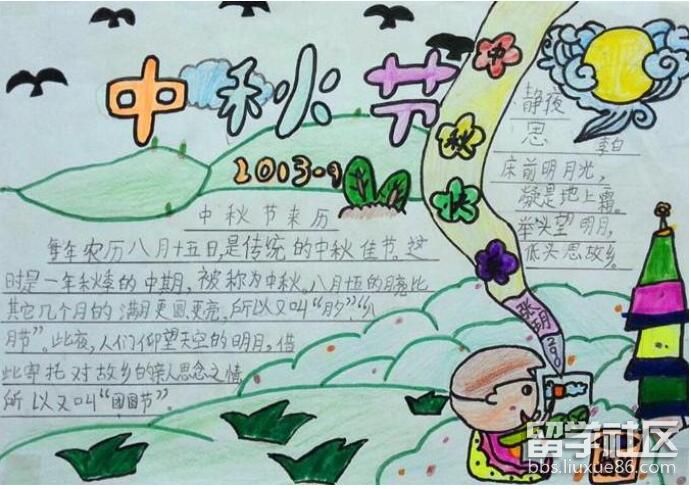 中秋节
2013.9
中秋节来历
每年农历八月十五日,是传统的中秋佳节。这
时是一年秋季的中期,被称为中秋。八月十五的月亮比
其它几个月的满月更圆更亮,所以又叫“月夕”“八
月节”。此夜,人们仰望天空的明月,借
此寄托对故乡的亲人思念之情,
所以又叫“团圆节”
中
秋
快
乐
静夜
思
李白
床前明月光,
疑是地上霜。
举头望明月,
低头思故乡。
留学社区
bbs.liuxue86.com